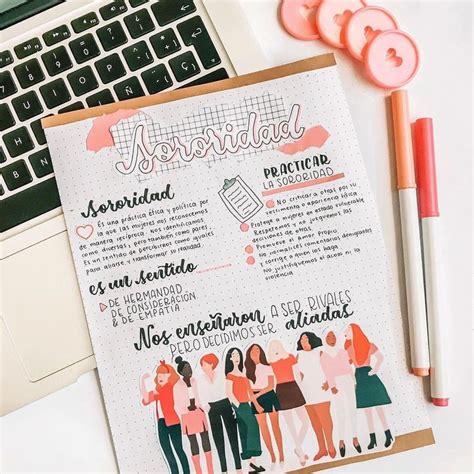 Sororidad
Sororidad
Es una práctica ética y política por
la que las mujeres nos reconocemos
de manera recíproca. Nos identificamos
como diversas, pero también como pares.
Es un sentido de percibirnos como iguales
para aliarse y transformar su realidad
es un sentido
DE HERMANDAD
DE CONSIDERACIÓN
& DE EMPATIA
PRACTICAR
LA SORORIDAD
No criticar a otras por su
vestimenta o apariencia física
Protege a mujeres de estado vulnerable
Respetemos y no juzguemos las
decisiones de otras.
Promueve el Amor Propio
No normalices comentarios denigrantes
y corrige a quien los haga
No justifiquemos el acoso ni la
violencia
Nos enseñaron A SER RIVALES
PERO DECIDIMOS SER aliadas